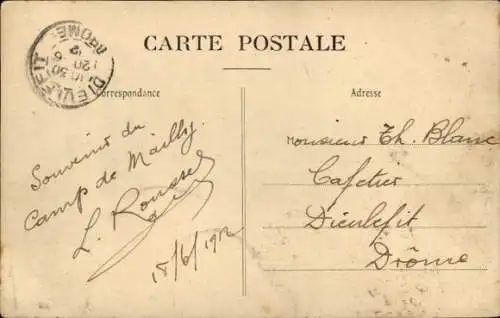 CARTE POSTALE
Correspondance
Adresse
DIEULEFIT
DROME
Souvenir du
Camp de Mailly.
L. Rousse
18/6/1912
Monsieur Th. Blanc
Cafetier
Dieulefit
Drôme